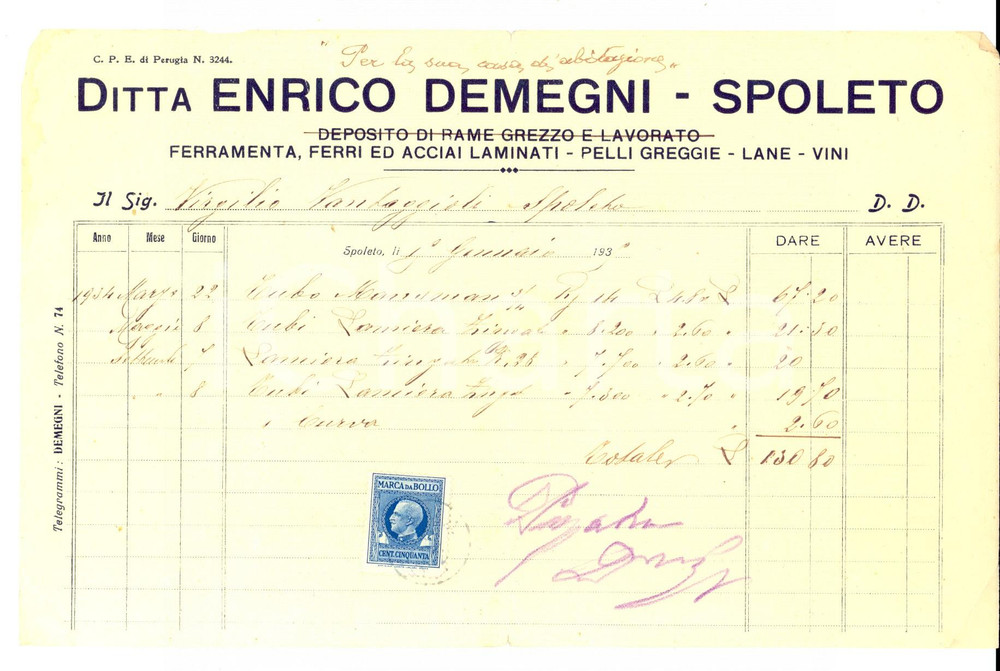 "Per la sua casa d'abitazione"
C. P. E. di Perugia N. 3244.
DITTA ENRICO DEMEGNI - SPOLETO
DEPOSITO DI RAME GREZZO E LAVORATO
FERRAMENTA, FERRI ED ACCIAI LAMINATI - PELLI GREGGIE - LANE - VINI
Il Sig. Virgilio Vantaggioli Spoleto D. D.
Anno Mese Giorno DARE AVERE
Spoleto, li 1° Gennaio 193
1934 Marzo 22 Tubo Mannesman Kg 14 L 4.80 L 67.20
Maggio 8 Tubi Lamiera " 8.200 " 2.60 " 21.30
Settembre 7 Lamiera Zingata " 7.700 " 2.60 " 20
" 8 Tubi Lamiera Zing " 7.300 " 2.70 " 19.70
" Curva " 2.60
Totale L 130.80
Telegrammi: DEMEGNI - Telefono N. 74
MARCA DA BOLLO
CENT. CINQUANTA
Pagata